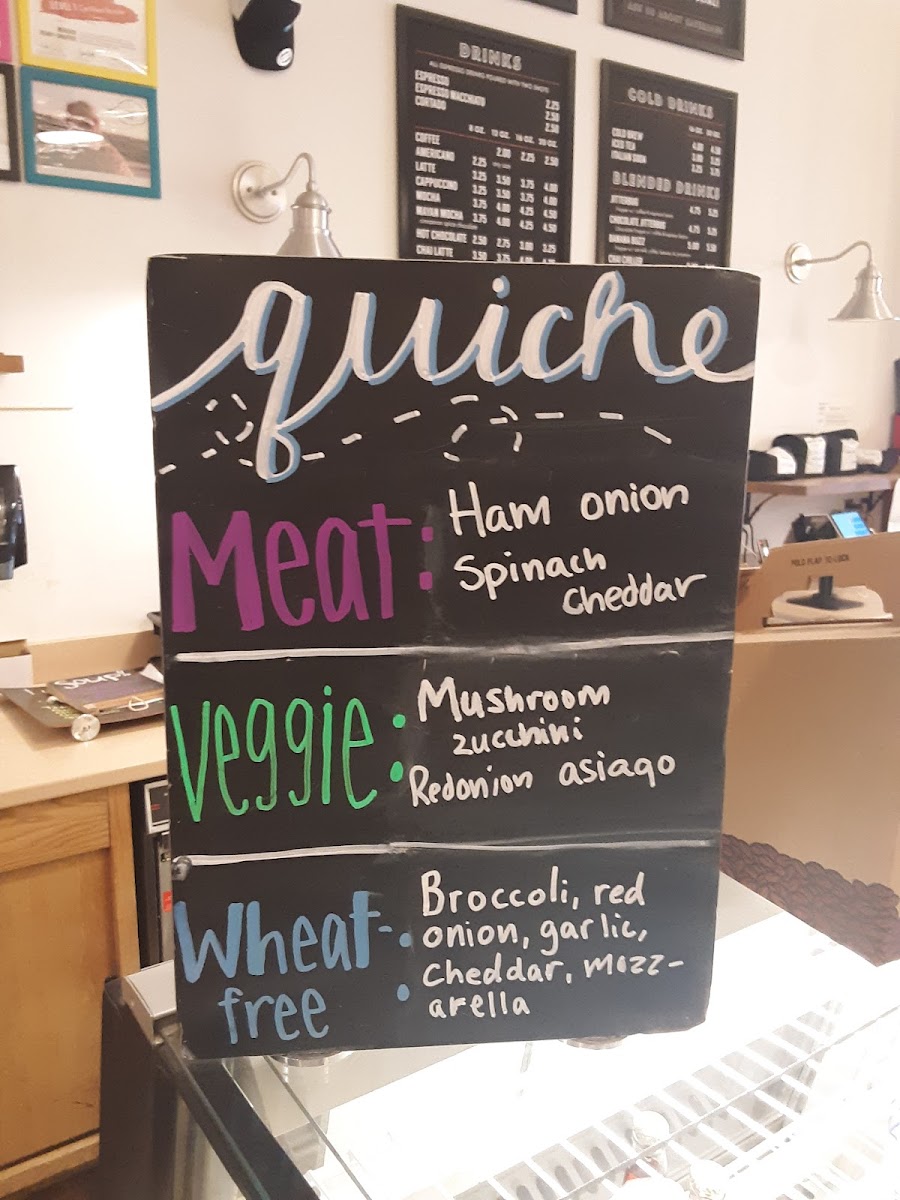 DRINKS
ALL ESPRESSO DRINKS POURED WITH TWO SHOTS
ESPRESSO 2.25
ESPRESSO MACCHIATO 2.50
CORTADO 2.50
8 OZ. 12 OZ. 16 OZ. 20 OZ.
COFFEE 2.00 2.25 2.50
AMERICANO 2.25
LATTE 3.25 3.50 3.75 4.00
CAPPUCCINO 3.25 3.50 3.75 4.00
MOCHA 3.75 4.00 4.25 4.50
MAYAN MOCHA 3.75 4.00 4.25 4.50
HOT CHOCOLATE 2.50 2.75 3.00 3.25
CHAI LATTE
COLD DRINKS
16 OZ. 20 OZ.
COLD BREW 4.00 4.50
ICED TEA
ITALIAN SODA 3.25 3.75
BLENDED DRINKS
JITTERBUG 4.75 5.25
CHOCOLATE JITTERBUG 4.75 5.25
BANANA BUZZ 5.00 5.50
CHAI CHILLER
quiche
Meat: Ham onion
Spinach
cheddar
Veggie: Mushroom
zucchini
Redonion asiago
Wheat-
free: Broccoli, red
onion, garlic,
cheddar, mozz-
arella
Soups